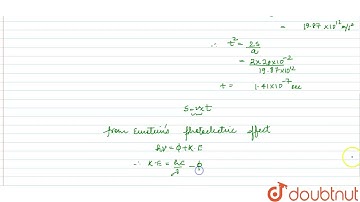 = 19.87 x 10¹² m/s²
∴ t² = 2s/a
= 2x20x10⁻²/19.87x10¹²
t = 1.41x10⁻⁷ sec
s=vxt
from Einstein's photoelectric effect
hν = ϕ+K.E
∴ K.E = hc/λ - ϕ
doubtnut